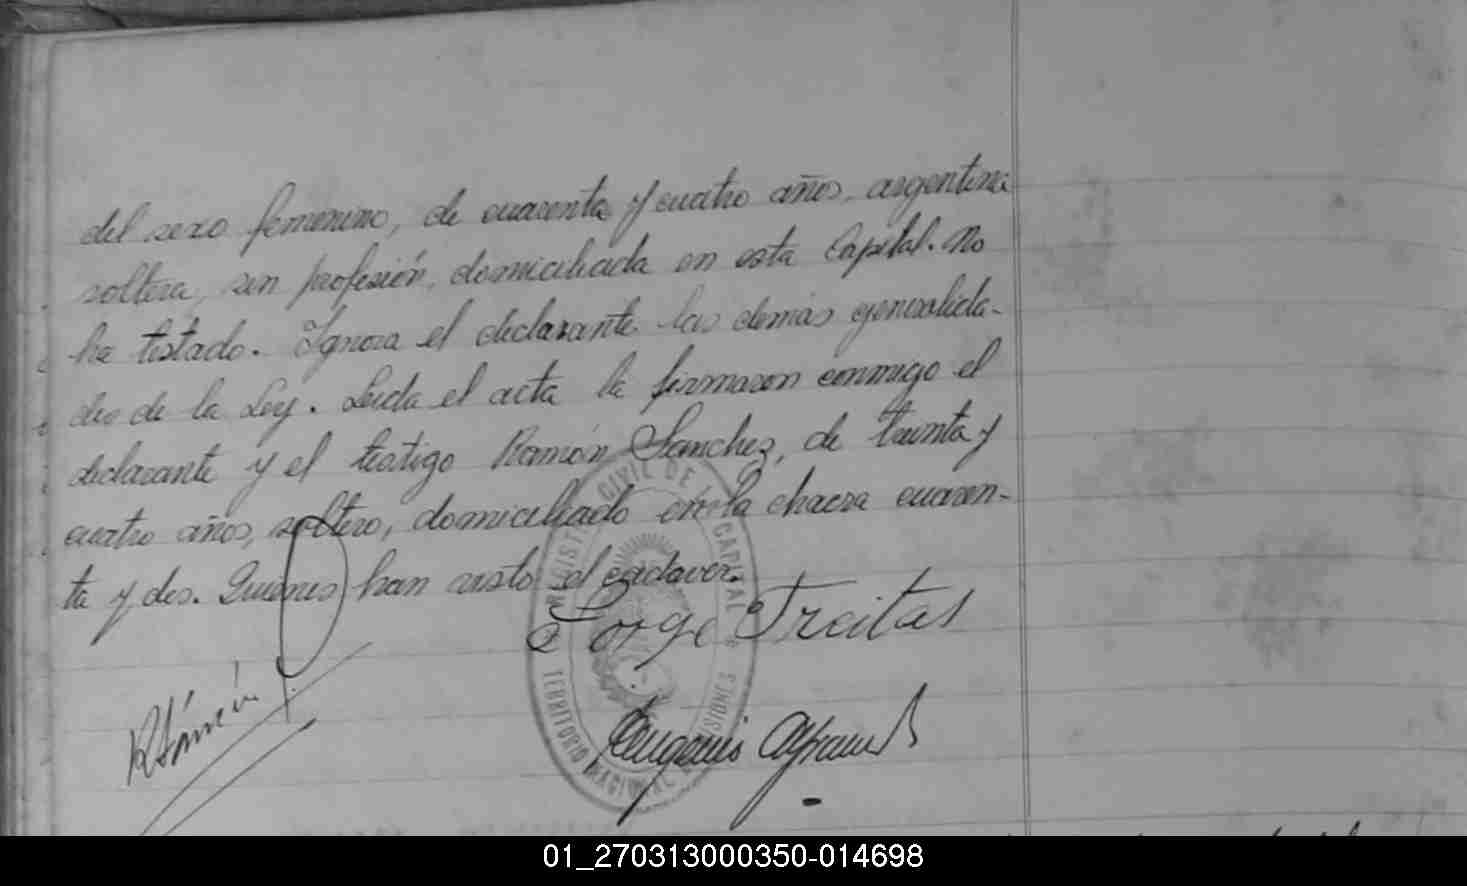 del sexo femenino, de cuarenta y cuatro años, argentina
soltera, sin profesión, domiciliada en esta Capital. No
ha testado. Ignora el declarante las demás generalida-
des de la Ley. Leida el acta la firmaron conmigo el
declarante y el testigo Ramón Sanchez, de treinta y
cuatro años, soltero, domiciliado en la chacra cuaren-
ta y dos. Quienes han visto el cadaver.
Jorge Freitas
Ramón
Eugenio
REGISTRO CIVIL DE LA CAPITAL
TERRITORIO NACIONAL DE MISIONES
01_270313000350-014698